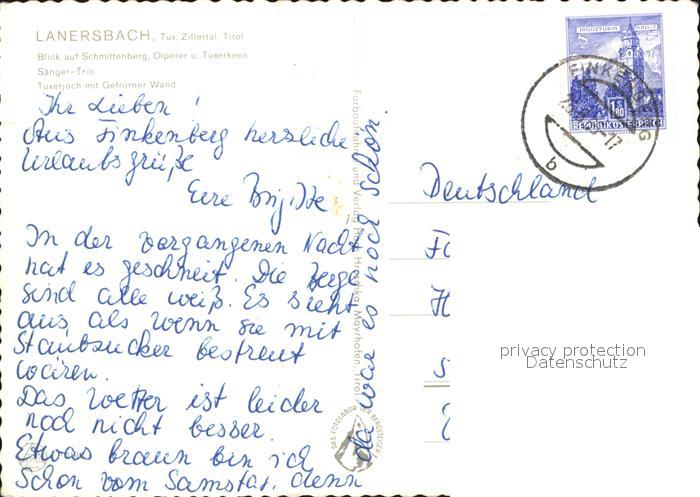 LANERSBACH, Tux, Zillertal, Tirol
Blick auf Schmittenberg, Olperer u. Tuxerkees
Sänger-Trio
Tuxerjoch mit Gefrorner Wand
Ihr Lieben!
Aus Finkenberg herzliche
Urlaubsgrüße
Eure Brigitte
In der vergangenen Nacht
hat es geschneit. Die Berge
sind alle weiß. Es sieht
aus, als wenn sie mit
Staubzucker bestreut
wären.
Das Wetter ist leider
noch nicht besser.
Etwas braun bin ich
schon vom Samstag, denn
da war es noch schön.
Farbaufnahme und Verlag
Mayrhofen, Tirol
DAS FOTOLABOR DER BERGSTEIGER
MÜNZTURM HALL i. T.
S 1.80
REPUBLIK ÖSTERREICH
FINKENBERG
b
Deutschland
privacy protection
Datenschutz